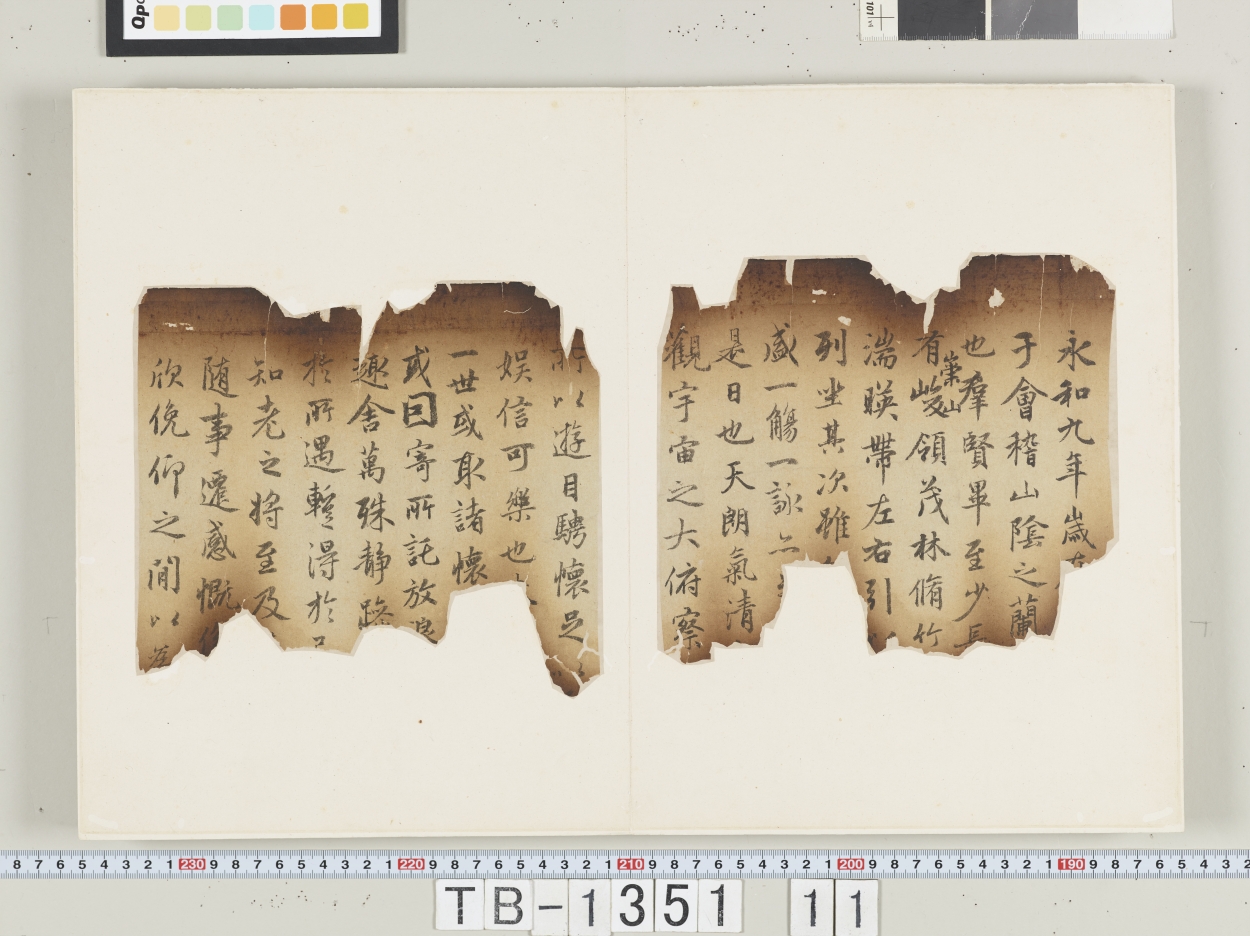 永和九年歲在
于會稽山陰之蘭
也羣賢畢至少長
有崇山峻領茂林脩竹
湍暎帶左右引以
列坐其次雖
盛一觴一詠亦
是日也天朗氣清
觀宇宙之大俯察
所以遊目騁懷足以
娛信可樂也
一世或取諸懷
或因寄所託放浪
趣舍萬殊靜躁
於所遇蹔得於己
知老之將至及
随事遷感慨係
欣俛仰之閒以為
8 7 6 5 4 3 2 1 230 9 8 7 6 5 4 3 2 1 220 9 8 7 6 5 4 3 2 1 210 9 8 7 6 5 4 3 2 1 200 9 8 7 6 5 4 3 2 1 190 9 8 7 6 5 4 3 2
TB-1351 11